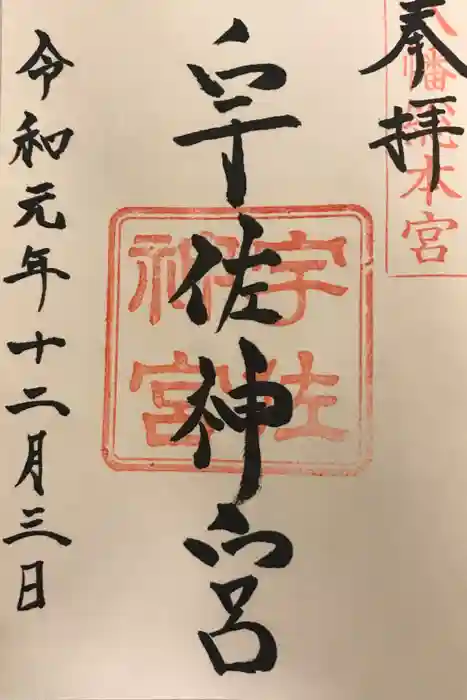 奉拝
八幡総本宮
宇佐神宮
宇佐
神宮
令和元年十二月三日